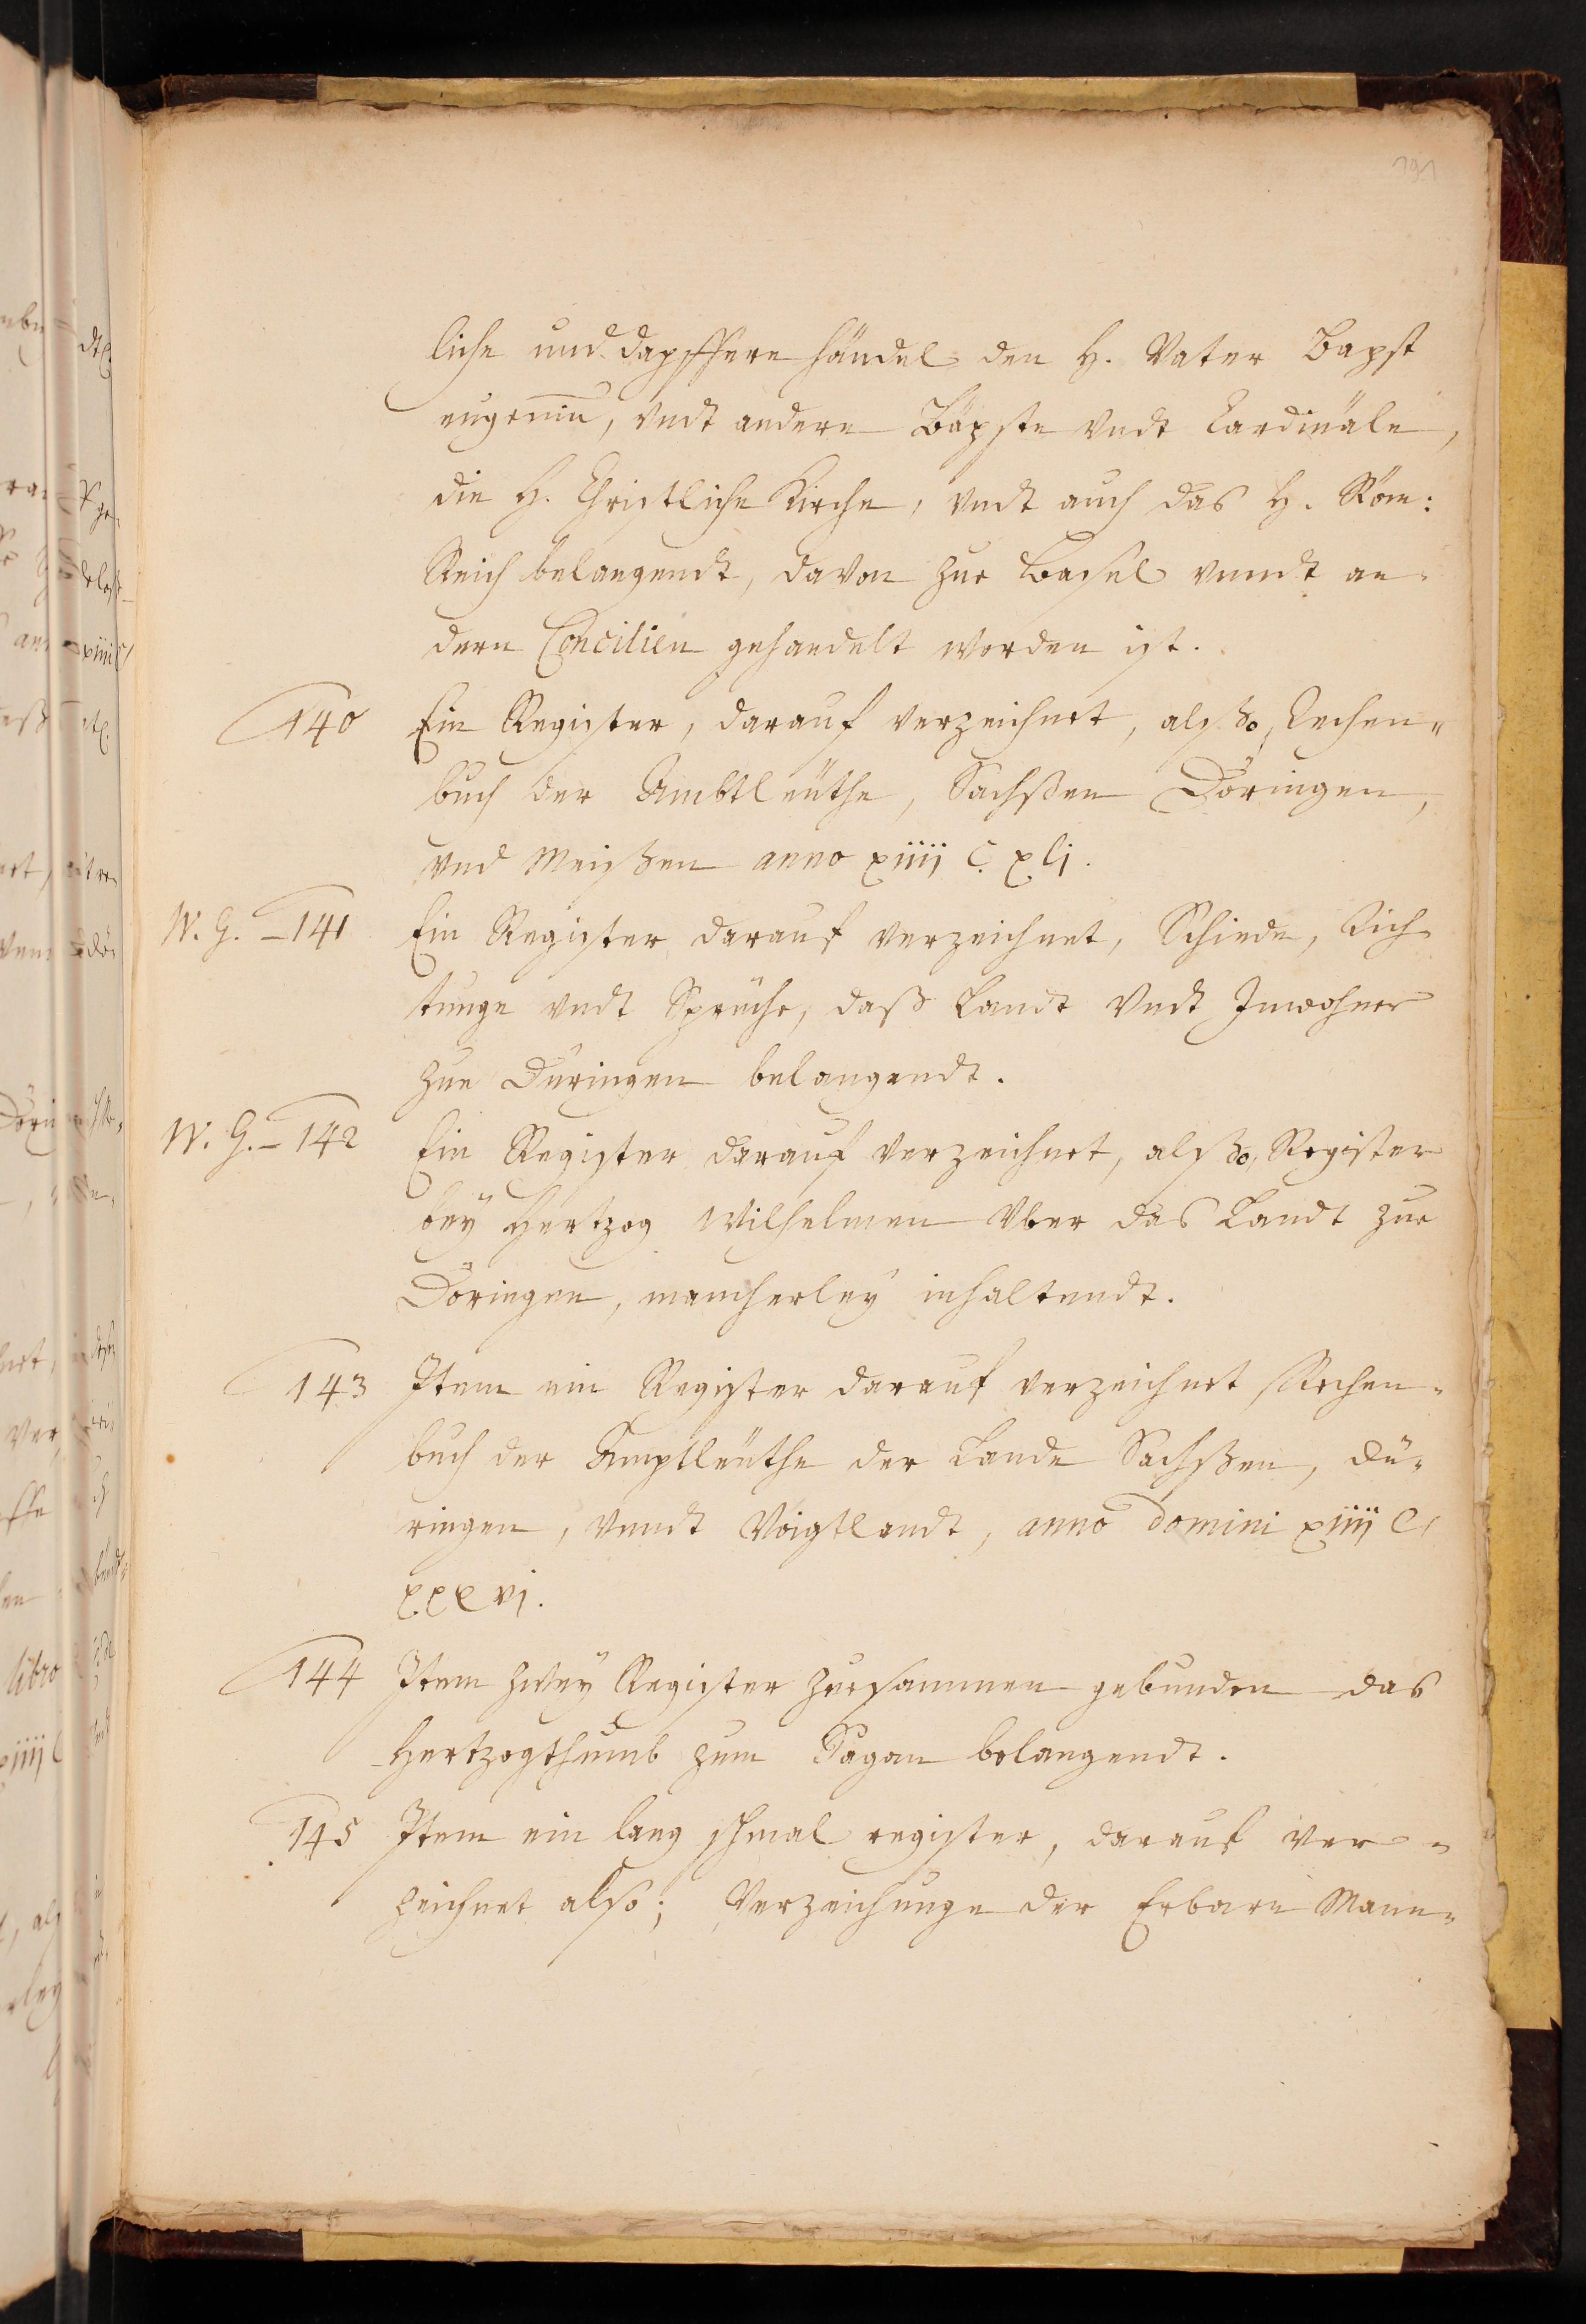 191
liche und dapffere händel den H. Vater Bapst
eugeniū, vndt andere Bäpste vndt Cardinäle,
die H. Christliche Kirche, vndt auch das H. Röm:
Reich belangendt, davon zue Basel vnndt an-
dern Concilien gehandelt worden ist.
140 Ein Register, darauf verzeichnet, alßo, Rechen-
buch der Ambtleüthe, Sachßen Döringen,
vnd Meißen anno xiiij C. xlj.
W. G. - 141 Ein Register darauf verzeichnet, Schiede, Rich
tunge vndt Sprüche, daß Landt vndt Inwohner
zue Düringen belangendt.
W. G. - 142 Ein Register darauf verzeichnet, alßo, Register
bey Hertzog Wilhelmen vber das Landt zue
Döringen, mancherley inhaltendt.
143 Item ein Register darauf verzeichnet Rechen-
buch der Amptleüthe der Lande Sachßen, Dü-
ringen, vnndt Voigtlandt, anno domini xiiij C
xxxvj.
144 Item zwey Register zuesammen gebunden das
Hertzogthumb zum Sagan belangendt.
145 Item ein lang schmal register, darauf ver-
zeichnet also; Verzeichunge der Erbarn Mann-